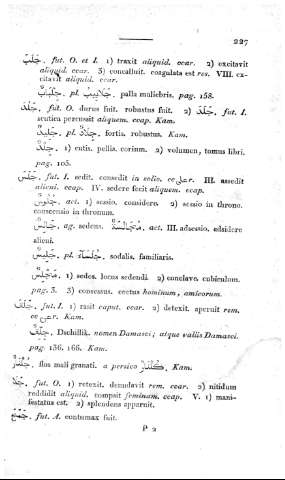 227
جَلَبَ, fut. O. et I. 1) traxit aliquid. ccar. 2) excitavit
aliquid. ccar. 3) concaluit. coagulata est res. VIII. ex-
citavit aliquid. ccar.
جِلْبَابٌ pl. جَلَابِيبُ, palla muliebris. pag. 158.
جَلُدَ, fut. O. durus fuit. robustus fuit. 2) جَلَدَ, fut. I.
scutica percussit aliquem. ccap. Kam.
جَلِيدٌ, pl. جِلَادٌ, fortis. robustus. Kam.
جِلْدٌ, 1) cutis. pellis. corium. 2) volumen, tomus libri.
pag. 103.
جَلَسَ, fut. I. sedit. consedit in solio. cc على r. III. assedit
alieni. ccap. IV. sedere fecit aliquem. ccap.
جُلُوسٌ, act. 1) sessio. considere. 2) sessio in throno.
consensio in thronum.
جَالِسٌ, ag. sedens. مُجَالَسَةٌ, act. III. adsessio. adsidere
alieni.
جَلِيسٌ, pl. جُلَسَاءُ, sodalis. familiaris.
مَجْلِسٌ, 1) sedes. locus sedendi. 2) conclave. cubiculum.
pag. 3. 3) consessus. coetus hominum, amicorum.
جَلَفَ, fut. I. 1) rasit caput. ccar. 2) detexit. aperuit rem.
cc عن r. Kam.
جِلَّقٌ, Dschillik. nomen Damasci; atque vallis Damasci.
pag. 136. 166. Kam.
جُلَّنَارٌ, flos mali granati. a persico گلنار, Kam.
جَلَا, fut. O. 1) retexit. denudavit rem. ccar. 2) nitidum
reddidit aliquid. compsit feminam. ccap. V. 1) mani-
festatus est. 2) splendens apparuit.
جَمَحَ, fut. A. contumax fuit.
P 2